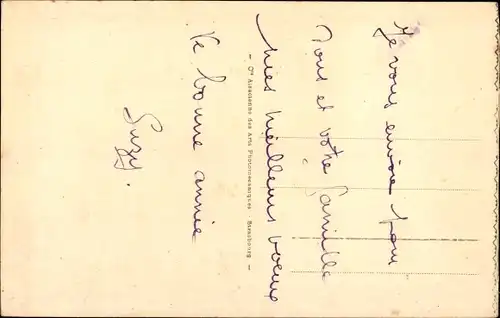 Je vous envoie pour
vous et votre famille
mes meilleurs voeux
de bonne année
Suzy.
— Cie Alsacienne des Arts Photomécaniques - Strasbourg —